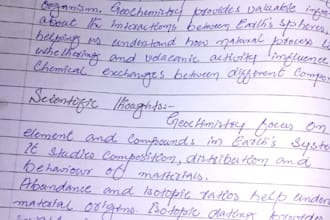 organism, Geochemistry provides valuable
about the interactions between Earth's spheres,
helping us understand how natural process
whethering and volcanic activity influence
Chemical exchanges between different
Scientific thoughts:-
Geochmistry focus on
element and compounds in Earth's
It studies composition, distribution and
behaviour of materials.
Abundance and Isotopic ratios help
material origins. Isotopic